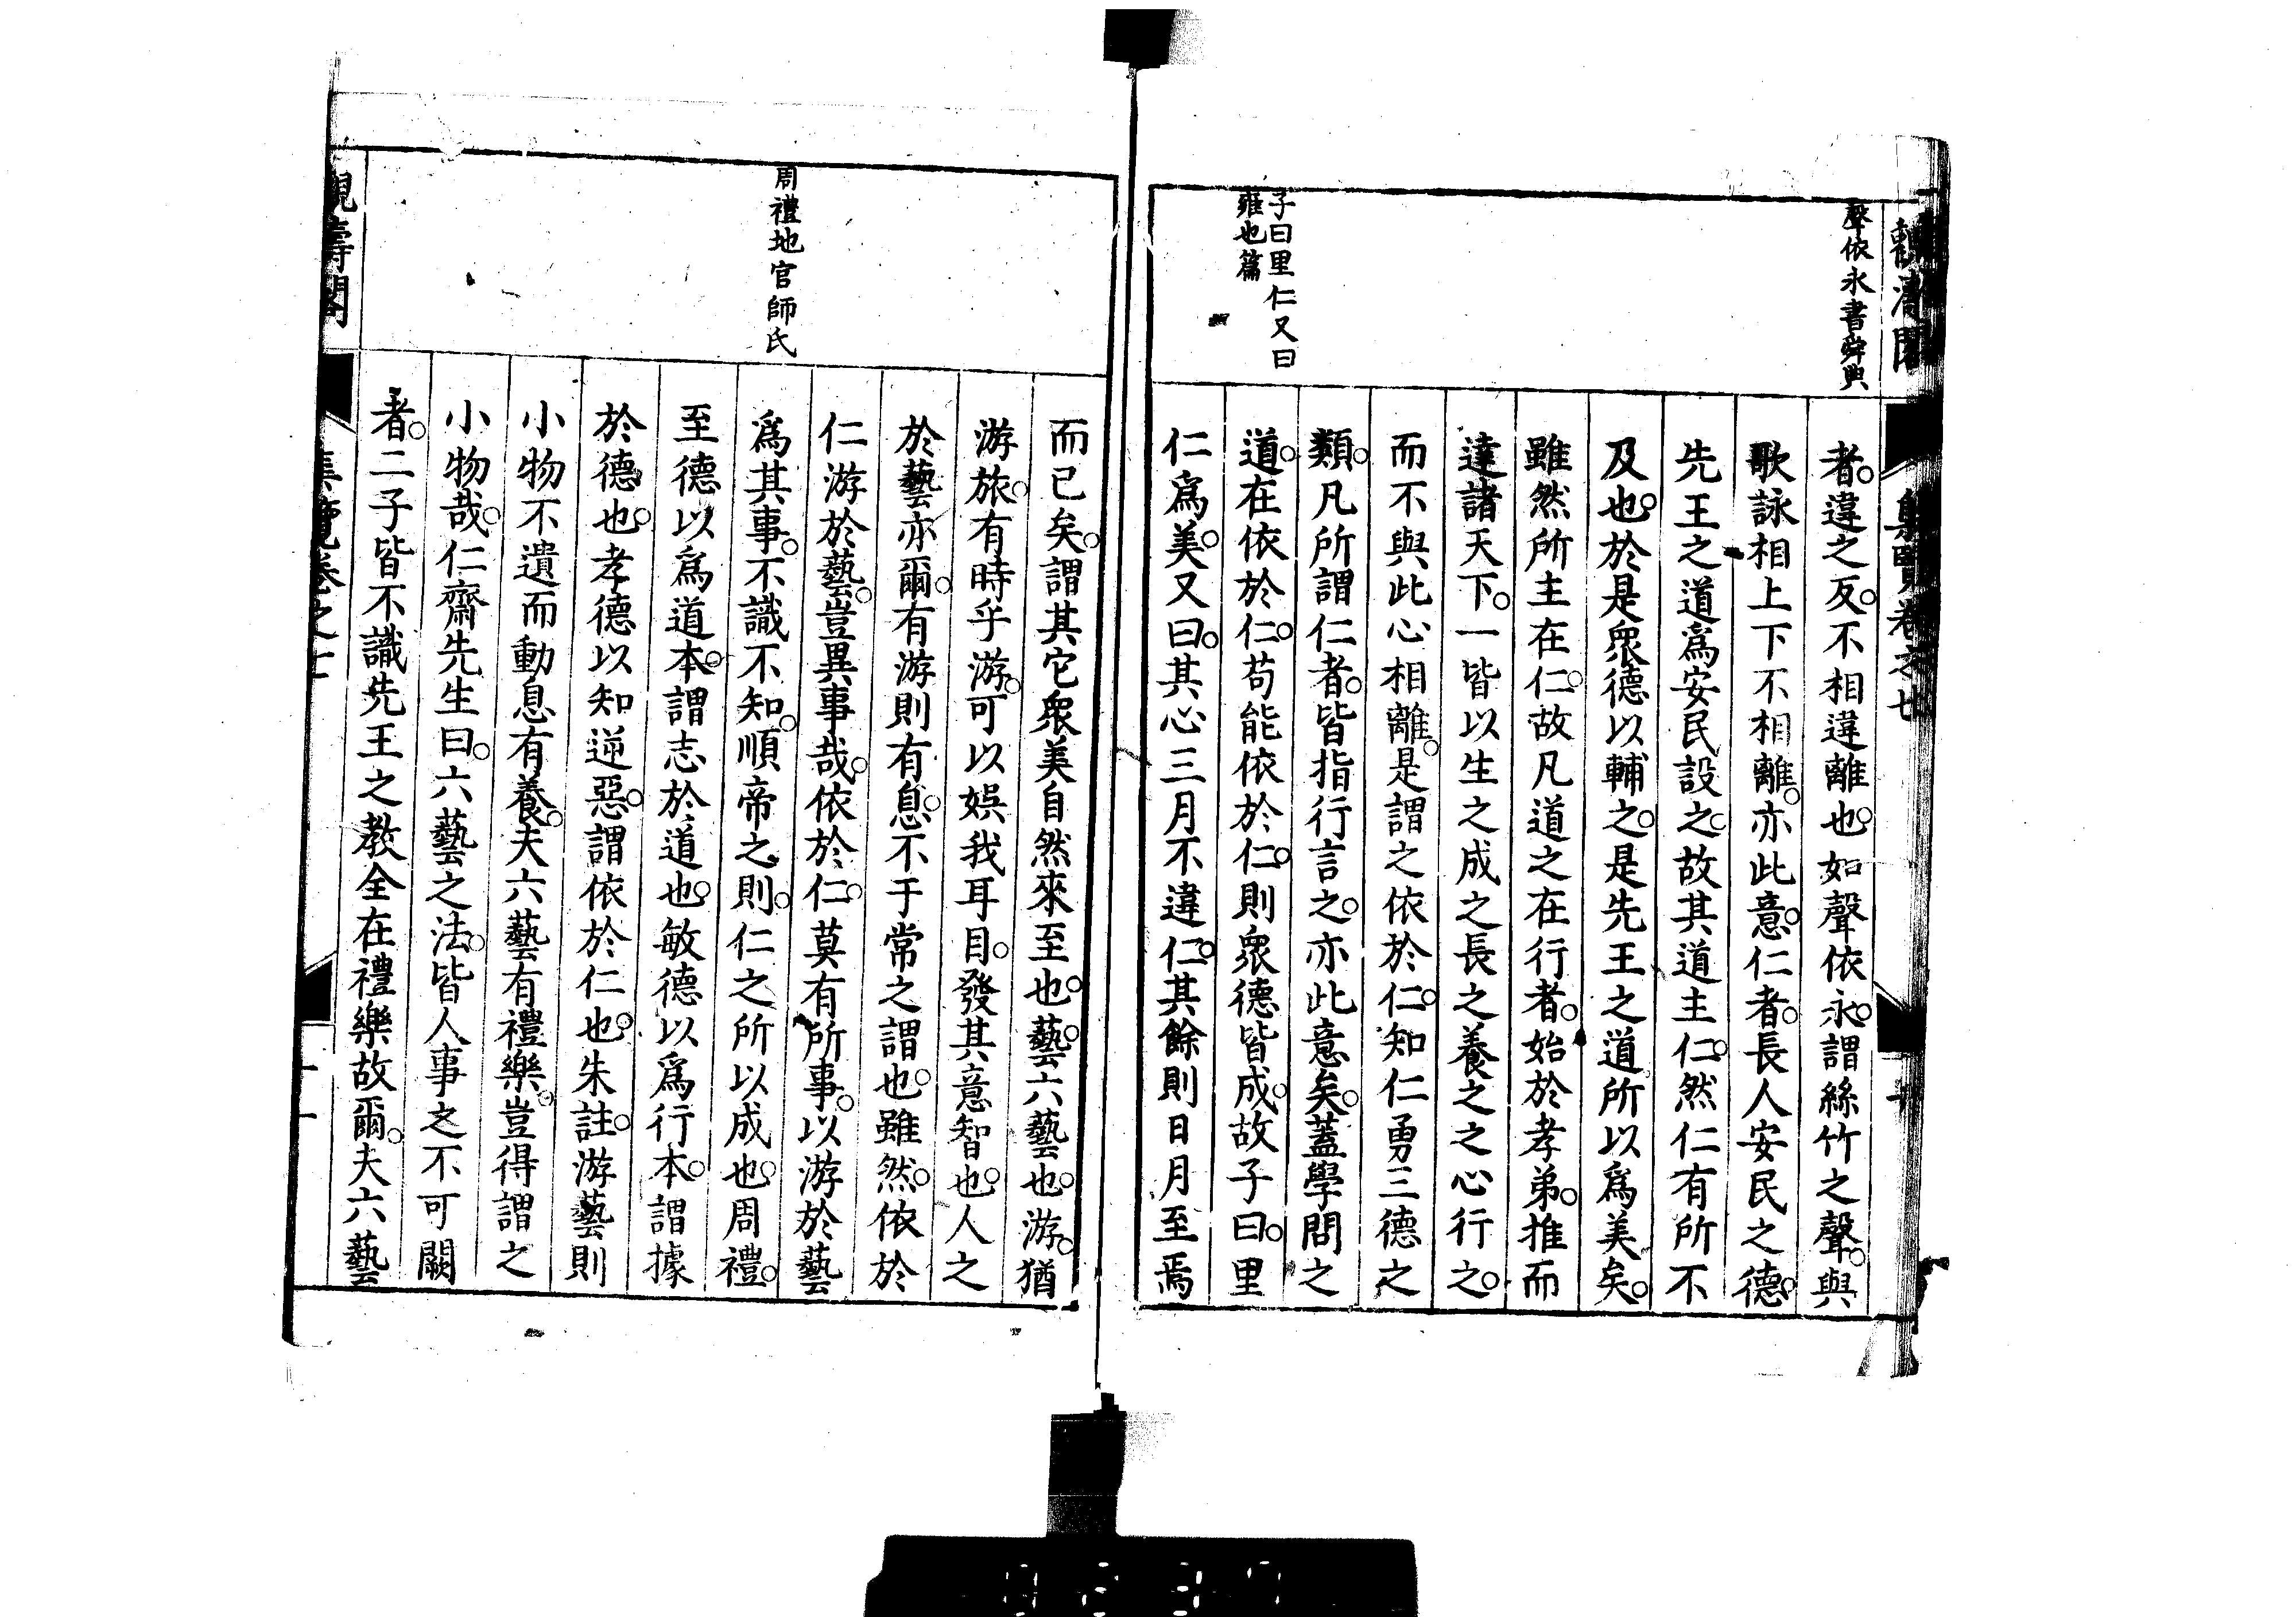 聲依永書舜典
者。違之反。不相違離也。如聲依永。謂絲竹之聲。與
歌詠相上下不相離。亦此意。仁者。長人安民之德。
先王之道爲安民設之。故其道主仁。然仁有所不
及也。於是眾德以輔之。是先王之道所以爲美矣。
雖然所主在仁。故凡道之在行者。始於孝弟。推而
達諸天下。一皆以生之成之長之養之之心行之。
而不與此心相離。是謂之依於仁。知仁勇三德之
類。凡所謂仁者。皆指行言之。亦此意矣。蓋學問之
道。在依於仁。苟能依於仁。則眾德皆成。故子曰。里
仁爲美。又曰。其心三月不違仁。其餘則日月至焉
子曰里仁又曰
雍也篇
集覽卷之七
而已矣。謂其它眾美自然來至也。藝。六藝也。游。猶
游旅。有時乎游。可以娛我耳目。發其意智也。人之
於藝亦爾。有游則有息。不于常之謂也。雖然。依於
仁游於藝。豈異事哉。依於仁。莫有所事。以游於藝
爲其事。不識不知。順帝之則。仁之所以成也。周禮。
至德以爲道本。謂志於道也。敏德以爲行本。謂據
於德也。孝德以知逆惡。謂依於仁也。朱註。游藝則
小物不遺而動息有養。夫六藝有禮樂。豈得謂之
小物哉。仁齋先生曰。六藝之法。皆人事之不可闕
者。二子皆不識先王之教全在禮樂故爾。夫六藝
周禮地官師氏
觀濤閣
集覽卷之七
十一